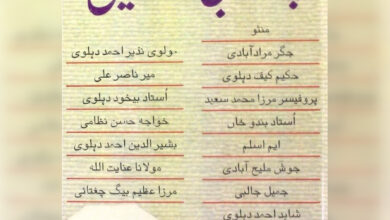 منٹو
جگر مرادآبادی
حکیم کیف دہلوی
پروفیسر مرزا محمد سعید
اُستاد بندو خاں
ایم اسلم
جوش ملیح آبادی
جمیل جالبی
شاہد احمد دہلوی
مولوی نذیر احمد دہلوی
میر ناصر علی
اُستاد بیخود دہلوی
خواجہ حسن نظامی
بشیر الدین احمد دہلوی
مولانا عنایت اللہ
مرزا عظیم بیگ چغتائی